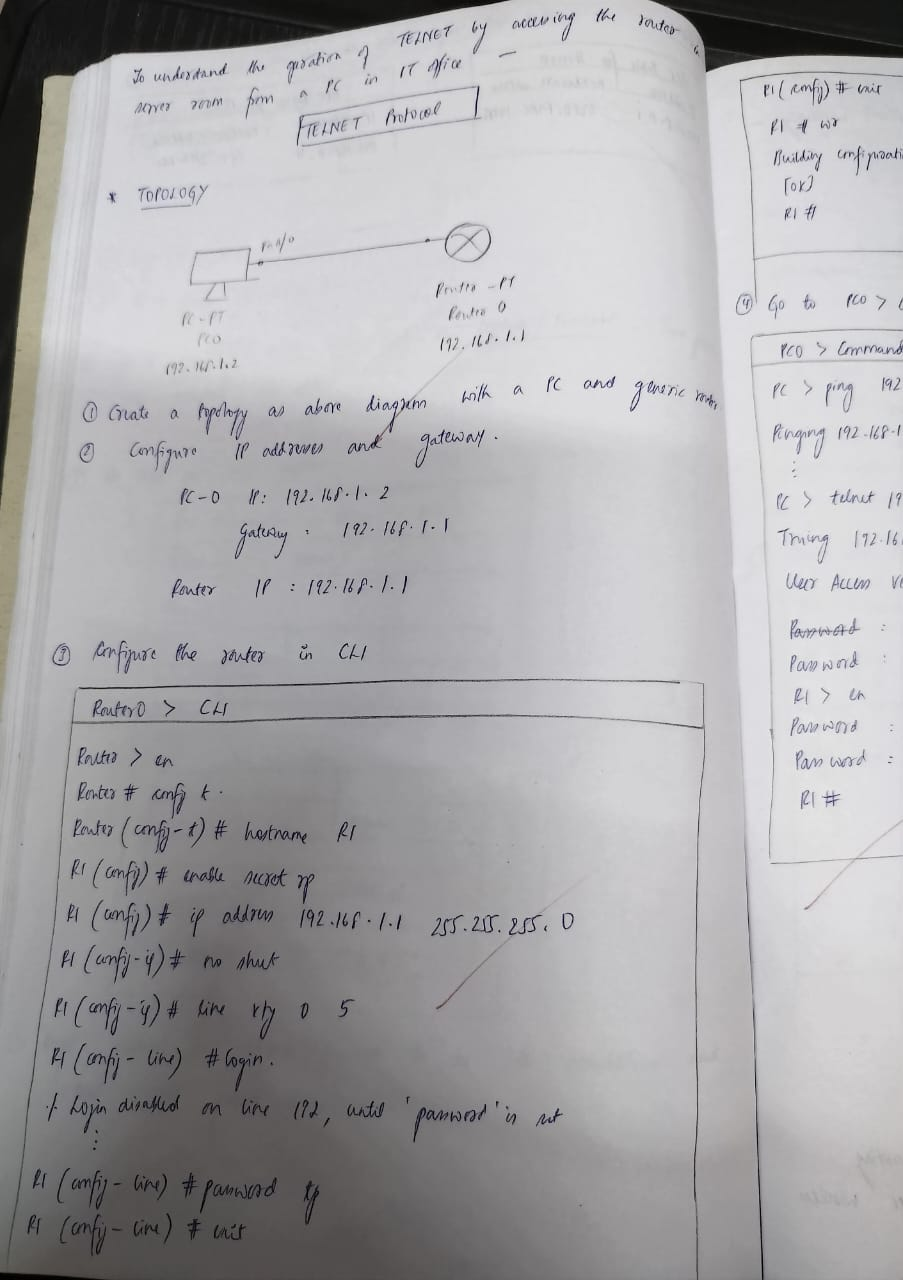 To understand the operation of TELNET by accessing the router in
server room from a PC in IT office
TELNET Protocol
* TOPOLOGY
Fa0/0
PC-PT
PC0
192.168.1.2
Router-PT
Router 0
192.168.1.1
① Create a topology as above diagram with a PC and generic router
② Configure IP addresses and gateway.
PC-0 IP: 192.168.1.2
Gateway : 192.168.1.1
Router IP : 192.168.1.1
③ Configure the router in CLI
Router0 > CLI
Router > en
Router # config t.
Router (config-t) # hostname R1
R1 (config) # enable secret rp
R1 (config) # ip address 192.168.1.1 255.255.255.0
R1 (config-if) # no shut
R1 (config-if) # line vty 0 5
R1 (config-line) # login.
% Login disabled on line 192, until 'password' is set
⋮
R1 (config-line) # password tp
R1 (config-line) # exit
R1 (config) # exit
R1 # wr
Building configurati
[OK]
R1 #
④ Go to PC0 >
PC0 > Command
PC > ping 192
Pinging 192.168.1
⋮
PC > telnet 19
Trying 192.16
User Access Ve
Password :
Password :
R1 > en
Password :
Password :
R1 #